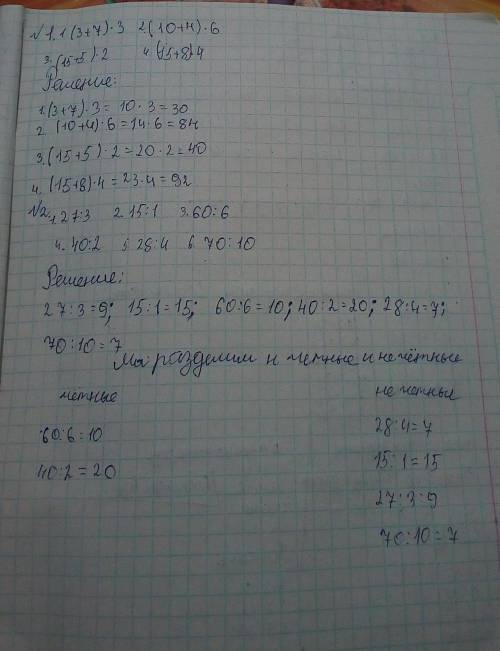 №1. 1 (3+7)·3 2.(10+4)·6
3.(15+5)·2 4.(15+8)·4
Решение:
1.(3+7)·3=10·3=30
2. (10+4)·6=14·6=84
3.(15+5)·2=20·2=40
4. (15+8)·4=23·4=92
№2. 1 27:3 2.15:1 3.60:6
4. 40:2 5. 28:4 6. 70:10
Решение:
27:3=9; 15:1=15; 60:6=10; 40:2=20; 28:4=7;
70:10=7
разделим н четные и нечётные
чётные нечетные
60:6=10 28:4=7
40:2=20 15:1=15
27:3:9
70:10=7